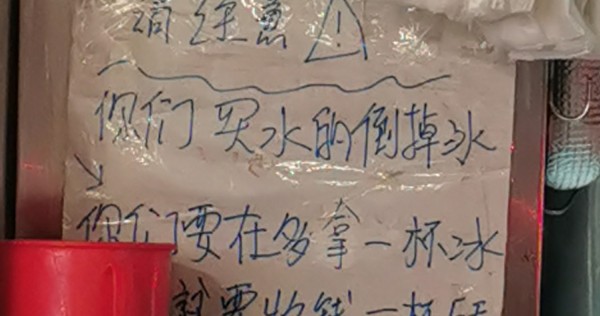 请注意
你们买水的倒掉冰
你们要在多拿一杯冰
就要收钱一杯